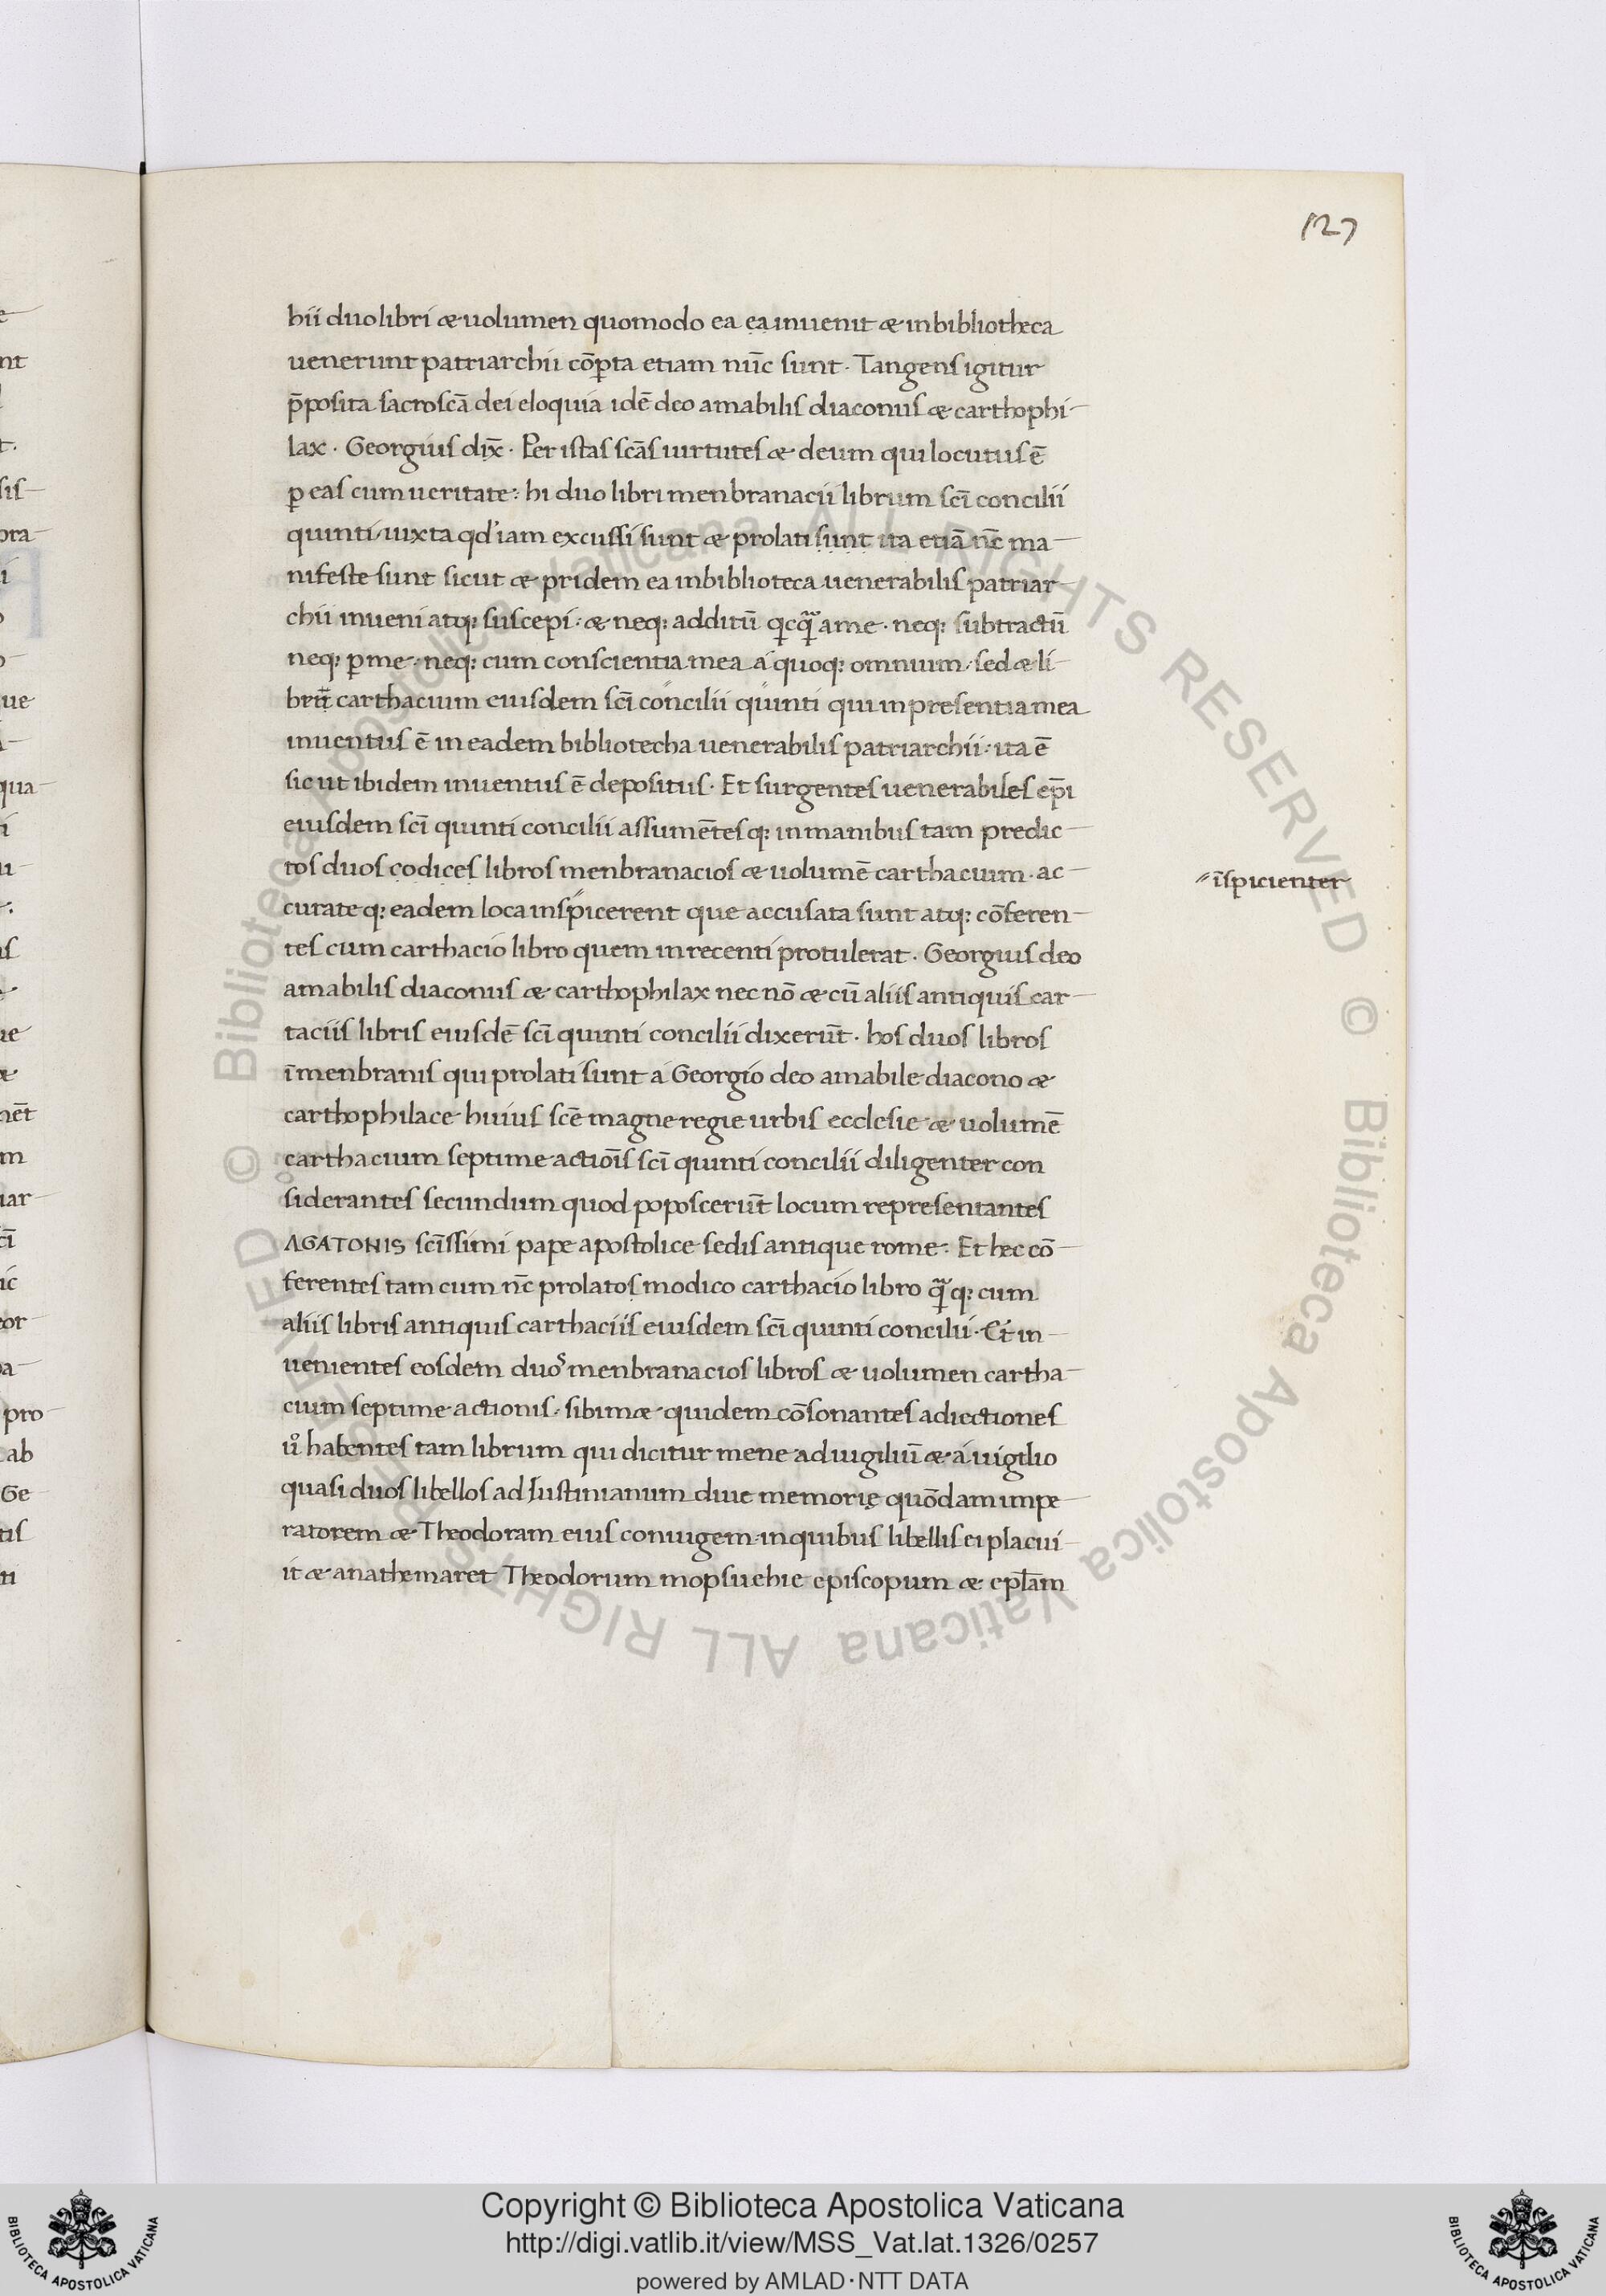 127
hii duo libri æ uolumen quomodo ea ea inuenit æ in bibliotheca
uenerunt patriarchii cōꝑta etiam nūc sunt. Tangens igitur
p̄posita sacroscā dei eloquia idē deo amabilis diaconus æ carthophi-
lax. Georgius dix̄. Per istas scās uirtutes æ deum qui locutus ē
ꝑ eas cum ueritate: hi duo libri menbranacii librum scī concilii
quinti iuxta qd' iam excussi sunt æ prolati sunt ita etiā nc̄ ma-
nifeste sunt sicut æ pridem ea in biblioteca uenerabilis patriar-
chii inueni atq: suscepi: æ neq: additū qicq̃ a me. neq: subtractū
neq: ꝑ me. neq: cum conscientia mea á quoq: omnium. sed æ li-
brū carthacium eiusdem scī concilii quinti qui in presentia mea
inuentus ē in eadem bibliotecha uenerabilis patriarchii: ita ē
sicut ibidem inuentus ē depositus. Et surgentes uenerabiles ep̄i
eiusdem scī quinti concilii assumētes q: in manibus tam predic-
tos duos codices libros menbranacios æ uolumē carthacium. ac-
curate q: eadem loca inspicerent que accusata sunt atq: cōferen-
īspicienter
tes cum carthacio libro quem in recenti protulerat. Georgius deo
amabilis diaconus æ carthophilax nec nō æ cū aliis antiquis car-
taciis libris eiusdē scī quinti concilii dixerūt. hos duos libros
ī menbranis qui prolati sunt á Georgio deo amabile diacono æ
carthophilace huius scē magne regie urbis ecclesie æ uolumē
carthacium septime actiōis scī quinti concilii diligenter con
siderantes secundum quod poposcerūt locum representantes
AGATONIS scīssimi pape apostolice sedis antique rome: Et hec cō-
ferentes tam cum nc̄ prolatos modico carthacio libro q̃ q: cum
aliis libris antiquis carthaciis eiusdem scī quinti concilii. Et in-
uenientes eosdem duos menbranacios libros æ uolumen cartha-
cium septime actionis. sibimæ quidem cōsonantes adiectiones
uº habentes tam librum qui dicitur mene ad uigiliū æ á uigilio
quasi duos libellos ad Iustinianum diue memorię quōdam impe-
ratorem æ Theodoram eius coniugem in quibus libellis ei placui-
it æ anathemaret Theodorum mopsuehie episcopum æ epłam
nt
sis-
ue
qua-
pro-
ab
Ge
Copyright © Biblioteca Apostolica Vaticana
http://digi.vatlib.it/view/MSS_Vat.lat.1326/0257
powered by AMLAD·NTT DATA
BIBLIOTECA APOSTOLICA VATICANA
BIBLIOTECA APOSTOLICA VATICANA
© Biblioteca Apostolica Vaticana ALL RIGHTS RESERVED
© Biblioteca Apostolica Vaticana ALL RIGHTS RESERVED